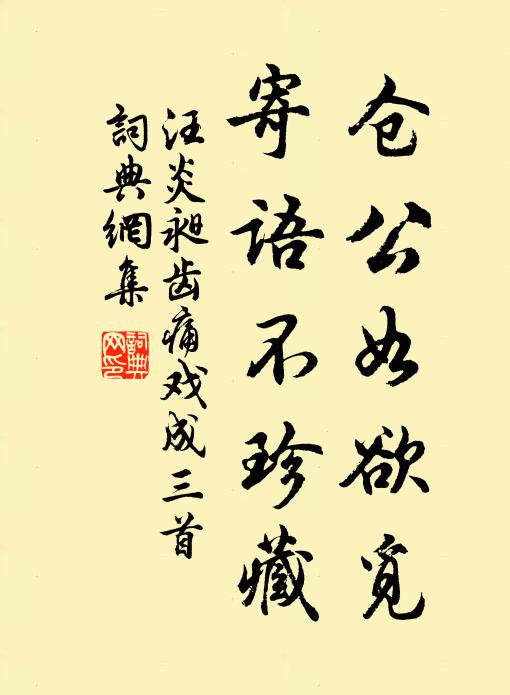 仓公如欲觅
寄语不珍藏
汪炎昶齿痛戏成三首
詞典網集
詞典网印